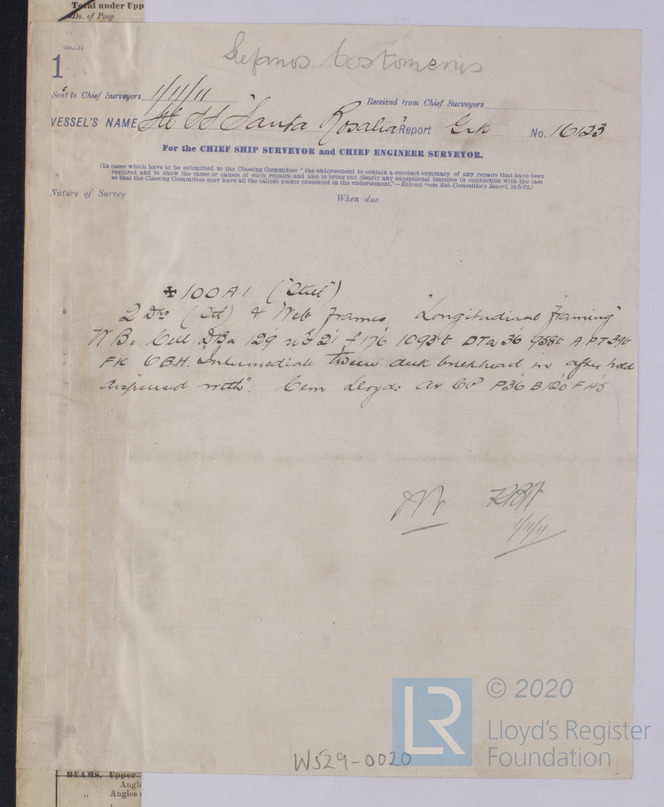 Total under Upp
Do. of Poop
1
Sent to Chief Surveyors 1/11/11
Received from Chief Surveyors
VESSEL'S NAME Stl SS "Santa Rosalia" Report Grk No. 16123
For the CHIEF SHIP SURVEYOR and CHIEF ENGINEER SURVEYOR.
(In cases which have to be submitted to the Classing Committee "the endorsement to contain a succinct summary of any repairs that have been
required and to show the cause or causes of such repairs, and also to bring out clearly any exceptional features in connection with the case
so that the Classing Committee may have all the salient points presented in the endorsement."—Extract from Sub-Committee's Report,
Nature of Survey
When due
✠ 100A1 ("Steel")
2 Dks (Stl) & Web frames, "Longitudinal Framing"
W B. Cell DBa 129 u E 21 f 176 1093t DTa 36 958t A P T 39t
FK 6BH. Intermediate tween deck bulkhead in after hold
dispensed with". Cem Lloyds A&CP P36 B120 F45
1/11/11
W529-0020
LR
© 2020
Lloyd's Register
Foundation
BEAMS, Upper
Angle
" Angles